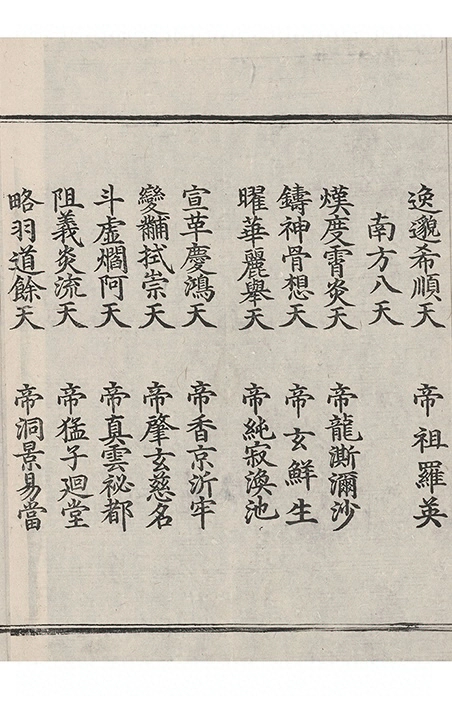 逸邈希順天　帝祖羅英
南方八天
熯度霄炎天　帝龍澌濔沙
鑄神骨想天　帝玄鮮生
曜華麗舉天　帝純寂渙池
宣革慶鴻天　帝香京沂牢
變黼拭崇天　帝肇玄慈名
斗虛爛阿天　帝真雲祕都
阻義炎流天　帝猛子廻堂
略羽道餘天　帝洞景易當